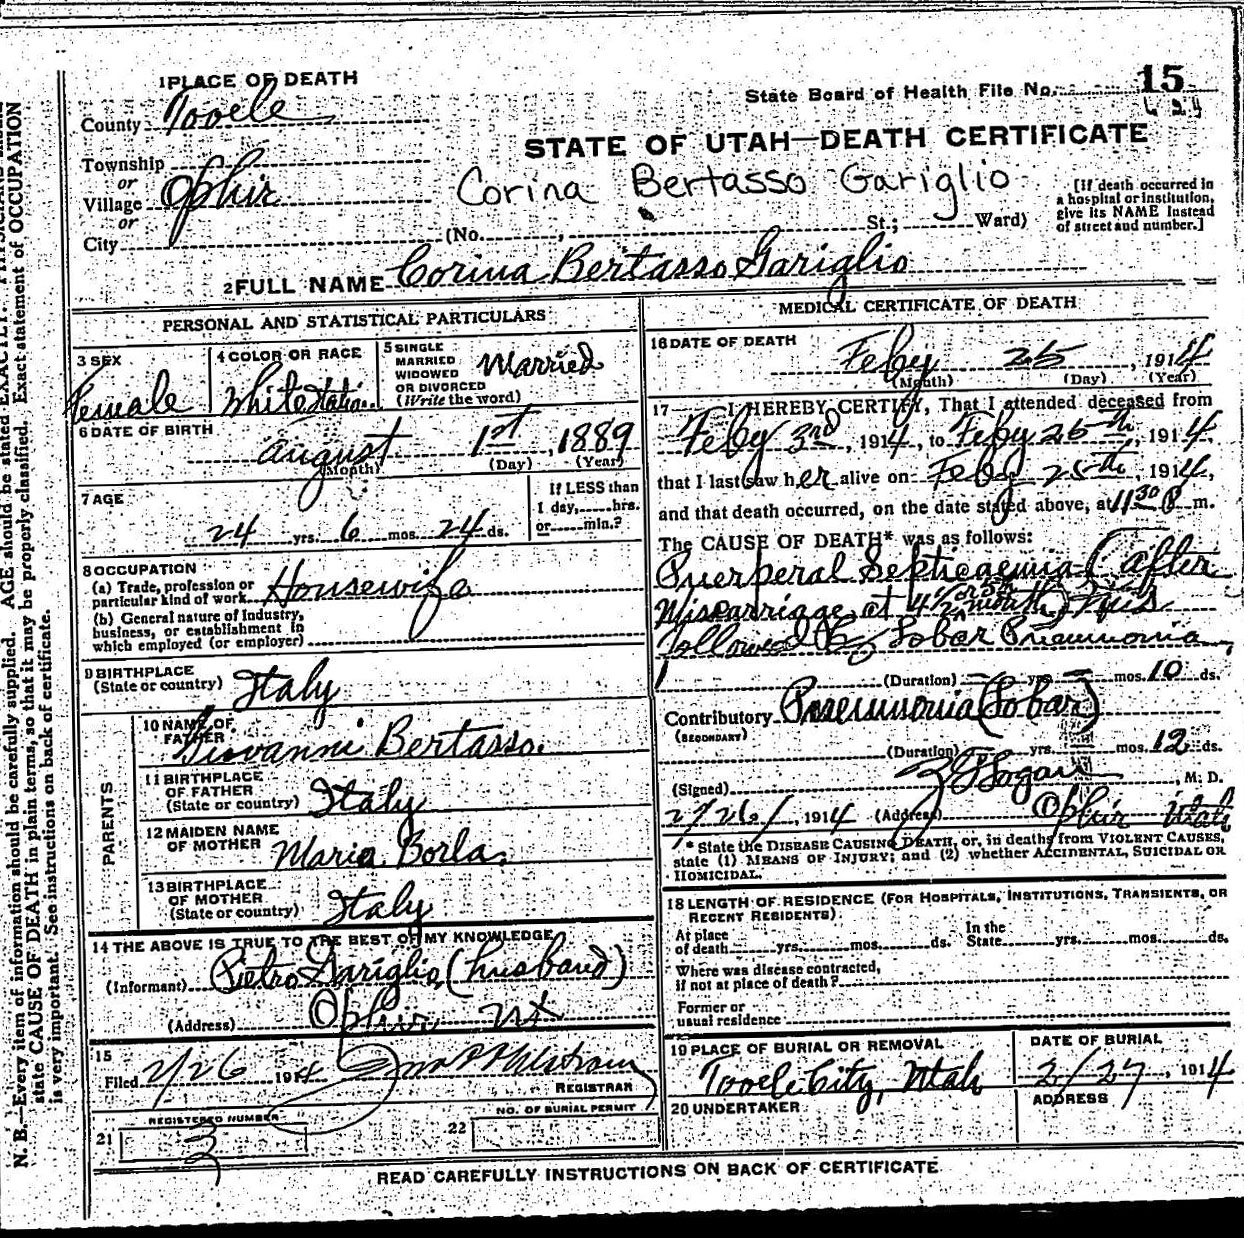 1 PLACE OF DEATH
County Tooele
State Board of Health File No. 15
624
STATE OF UTAH—DEATH CERTIFICATE
Township
or
Village Ophir
or
City
Corina Bertasso Gariglio
(No. , St.; Ward)
[If death occurred in
a hospital or institution,
give its NAME instead
of street and number.]
2 FULL NAME Corina Bertasso Gariglio
PERSONAL AND STATISTICAL PARTICULARS
3 SEX
Female
4 COLOR OR RACE
White
5 SINGLE
MARRIED
WIDOWED
OR DIVORCED
(Write the word)
Married
6 DATE OF BIRTH
August 1st, 1889
(Month) (Day) (Year)
7 AGE
24 yrs. 6 mos. 24 ds.
If LESS than
1 day, hrs.
or min.?
8 OCCUPATION
(a) Trade, profession or
particular kind of work Housewife
(b) General nature of Industry,
business, or establishment in
which employed (or employer)
9 BIRTHPLACE
(State or country) Italy
PARENTS
10 NAME OF
FATHER Giovanni Bertasso.
11 BIRTHPLACE
OF FATHER
(State or country) Italy
12 MAIDEN NAME
OF MOTHER Maria Borla.
13 BIRTHPLACE
OF MOTHER
(State or country) Italy
14 THE ABOVE IS TRUE TO THE BEST OF MY KNOWLEDGE
(Informant) Pietro Gariglio, (husband)
(Address) Ophir Ut
15
Filed 2/26 1914
REGISTRAR
REGISTERED NUMBER
21 3
NO. OF BURIAL PERMIT
22
MEDICAL CERTIFICATE OF DEATH
16 DATE OF DEATH
Feby 25, 1914
(Month) (Day) (Year)
17 I HEREBY CERTIFY, That I attended deceased from
Feby 3rd, 1914, to Feby 25th, 1914,
that I last saw her alive on Feby 25th, 1914,
and that death occurred, on the date stated above, at 11 30 P m.
The CAUSE OF DEATH* was as follows:
Puerperal Septicaemia (after
Miscarriage at 4½ or 5th month) This
followed by Lobar Pneumonia
(Duration) yrs. mos. 10 ds.
Contributory Pneumonia (Lobar)
(SECONDARY)
(Duration) yrs. mos. 12 ds.
(Signed) Logan, M. D.
2/26/, 1914 (Address) Ophir Utah
* State the DISEASE CAUSING DEATH, or, in deaths from VIOLENT CAUSES,
state (1) MEANS OF INJURY; and (2) whether ACCIDENTAL, SUICIDAL OR
HOMICIDAL.
18 LENGTH OF RESIDENCE (FOR HOSPITALS, INSTITUTIONS, TRANSIENTS, OR
RECENT RESIDENTS).
At place
of death yrs. mos. ds.
In the
State yrs. mos. ds.
Where was disease contracted,
if not at place of death?
Former or
usual residence
19 PLACE OF BURIAL OR REMOVAL
Tooele City, Utah
DATE OF BURIAL
2/27, 1914
20 UNDERTAKER
ADDRESS
READ CAREFULLY INSTRUCTIONS ON BACK OF CERTIFICATE
N. B.—Every item of information should be carefully supplied. AGE should be stated EXACTLY. PHYSICIANS
state CAUSE OF DEATH in plain terms, so that it may be properly classified. Exact statement of OCCUPATION
is very important. See instructions on back of certificate.